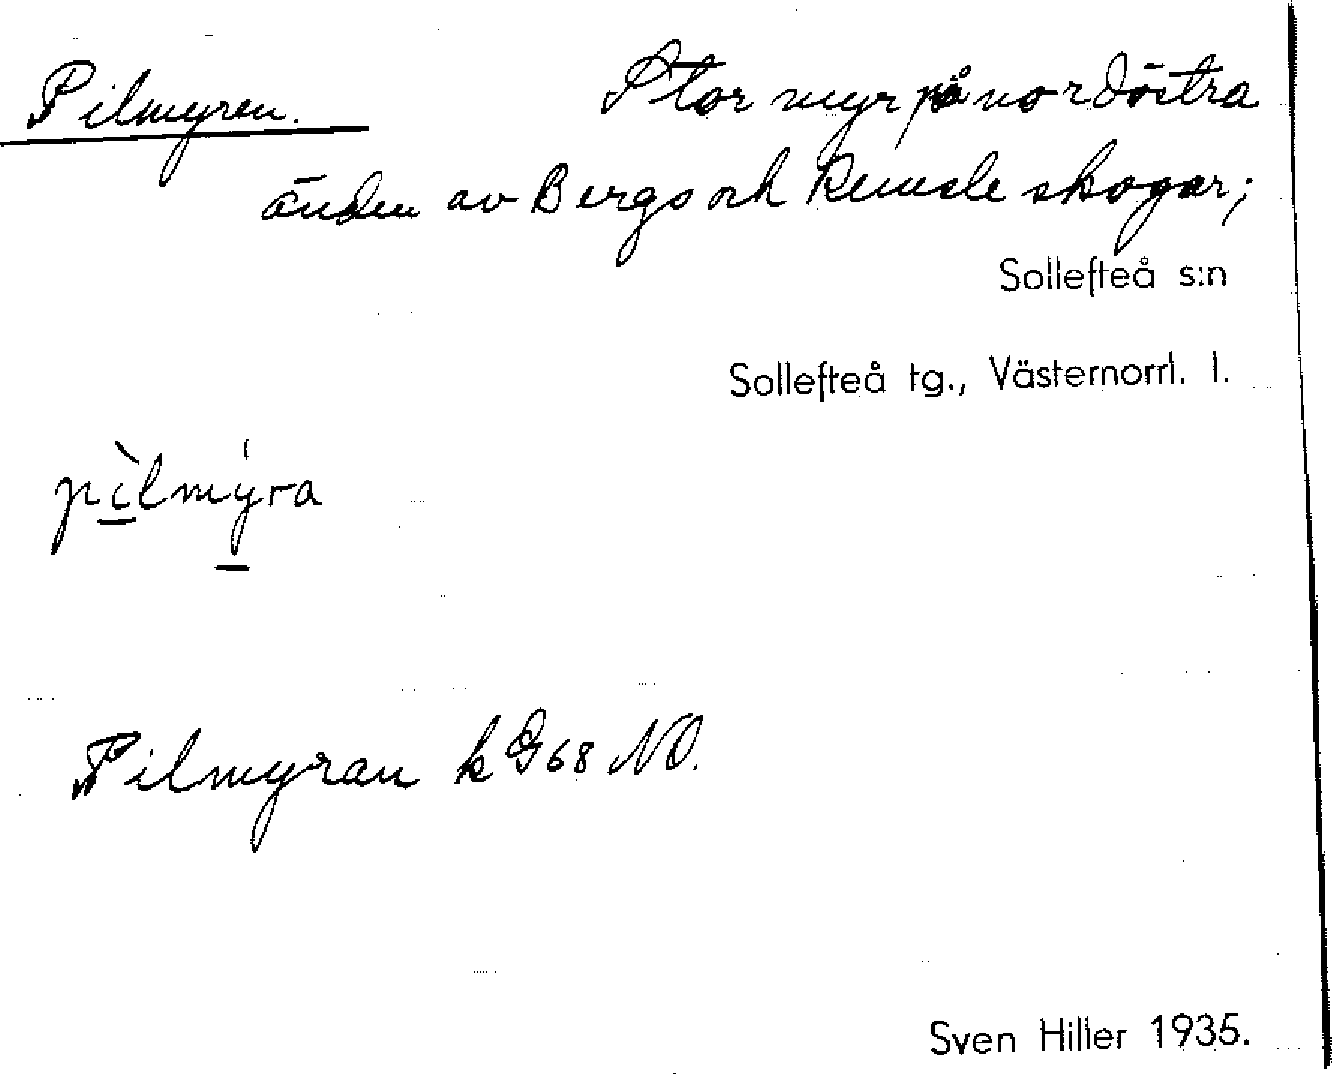 Pilmyren. Stor myr på nordöstra
änden av Bergs och Remsle skogar;
Sollefteå s:n
Sollefteå tg., Västernorrl. l.
pìlmýra
Pilmyran k G68 NO.
Sven Hiller 1935.